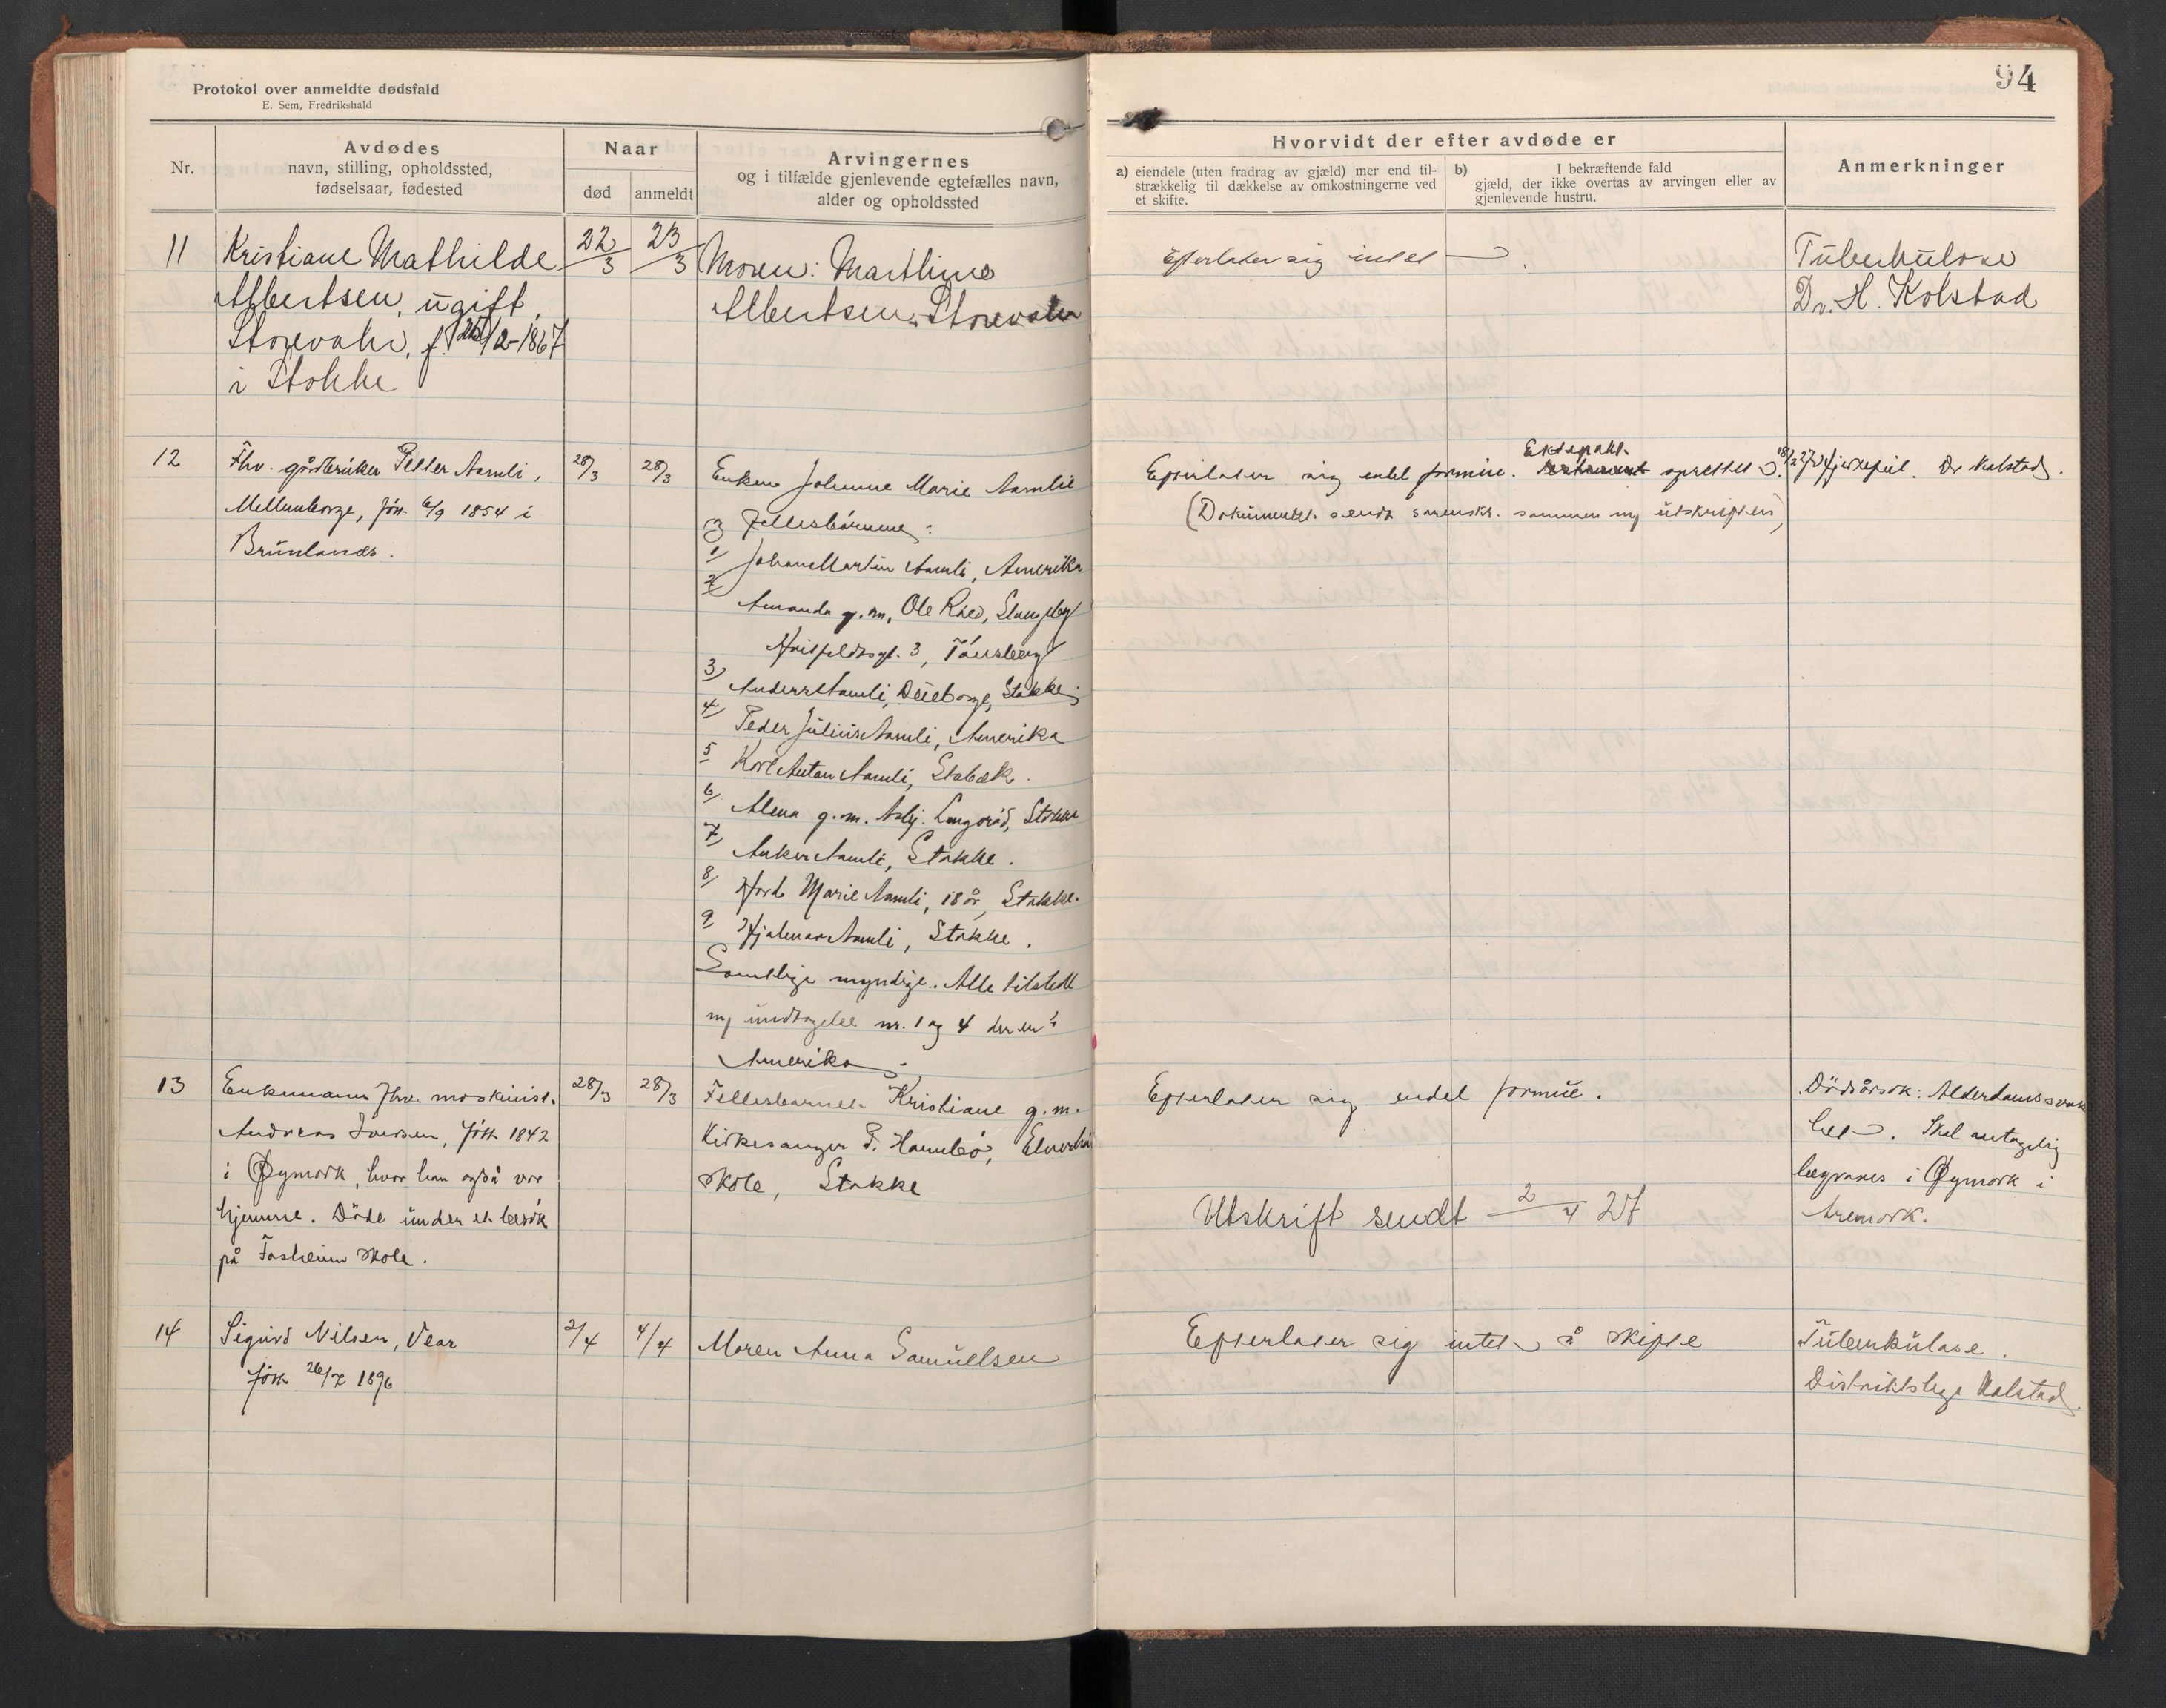 Protokol over anmeldte dødsfald
E. Sem, Fredrikshald
Nr.
Avdødes
navn, stilling, opholdssted,
fødselsaar, fødested
Naar
død
anmeldt
Arvingernes
og i tilfælde gjenlevende egtefælles navn,
alder og opholdssted
94
Hvorvidt der efter avdøde er
a) eiendele (uten fradrag av gjæld) mer end til-
strækkelig til dækkelse av omkostningerne ved
et skifte.
b) I bekræftende fald
gjæld, der ikke overtas av arvingen eller av
gjenlevende hustru.
Anmerkninger
11
Kristiane Mathilde
Albertsen, ugift,
Storevahr, f. 2/2-1867
i Stokke
22/3
23/3
Moren: Marthine
Albertsen, Storevahr
Efterlater sig intet
Tuberkulose
Dr. H. Kolstad
12
Fhv. gårdbruker Petter Aamli,
Mellumborge, født 6/9 1854 i
Brunlanes.
28/3
28/3
Enken Johanne Marie Aamlie
Fellesbarnene:
1/ Johan Martin Aamli, Amerika
2/ Amanda g.m. Ole Råed, Slagsby
3, Tønsberg
3/ Anders Aamli, Borge, Stokke
4/ Peder Julius Aamli, Amerika
5 Karl Anton Aamli, Stabæk.
6/ Alma g.m. Asbj. Langrød, Stokke
7/ Anker Aamli, Stokke.
8/ Marie Aamli, 18 år, Stokke.
9 Hjalmar Aamli, Stokke.
Samtlige myndige. Alle tilstede
m/ undtagelse nr. 1 og 4 der er i
Amerika.
Ektepakt
Efterlater sig endel formue. oprettet 18/2 27
(Dokumentet sendt sorenskr. sammen m/ utskriften)
Hjertefeil. Dr Kolstad.
13
Enkemann fhv. maskinist.
Andreas Iversen, født 1842
i Øymark, hvor han også var
hjemme. Døde under et besøk
på Fosheim skole.
28/3
28/3
Fellesbarnet Kristiane g.m.
Kirkesanger P. Hannebo,
skole, Stokke
Efterlater sig endel formue.
Utskrift sendt 2/4 27
Dødsårsak: Alderdomssvak
het. Skal antagelig
begraves i Øymark i
Aremark.
14
Sigurd Nilsen, Vear
født 26/7 1896
2/4
4/4
Maren Anna Samuelsen
Efterlater sig intet å skifte
Tuberkulose.
Distriktslege Kolstad.